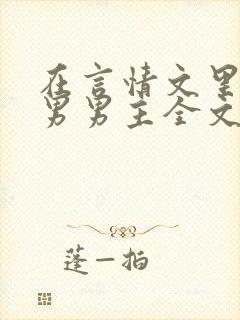 在言情文里
男男主全文
蓬一拍